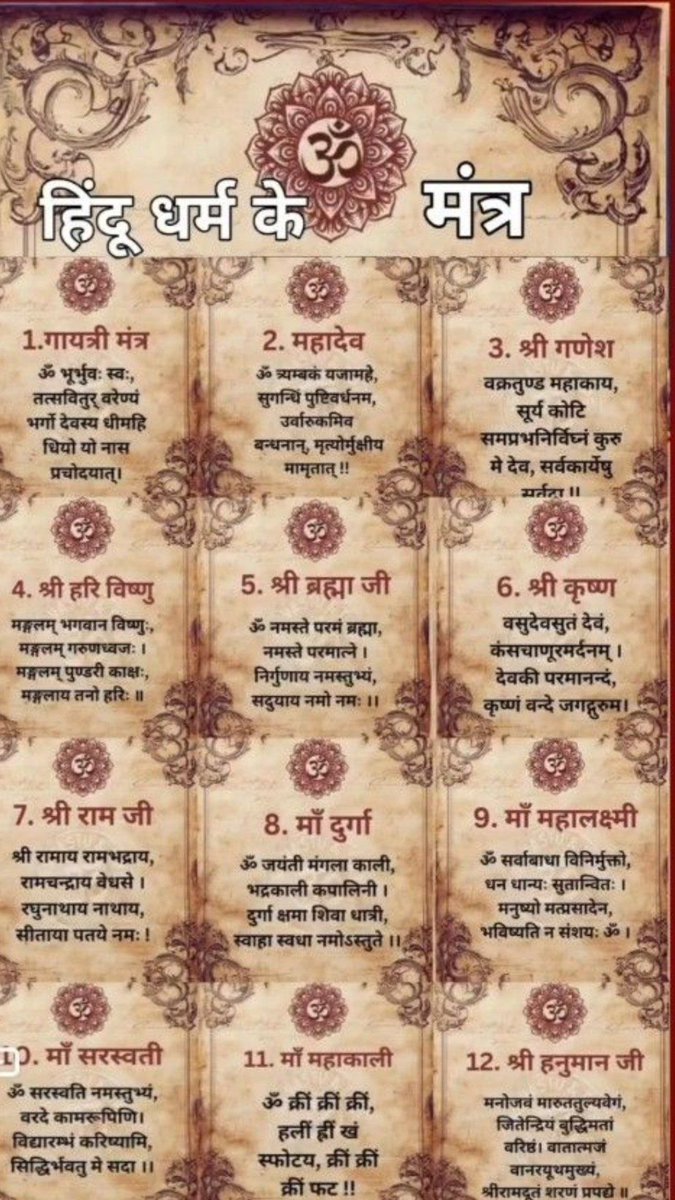 ॐ
हिंदू धर्म के मंत्र
ॐ
1.गायत्री मंत्र
ॐ भूर्भुवः स्वः,
तत्सवितुर् वरेण्यं
भर्गो देवस्य धीमहि
धियो यो नास
प्रचोदयात्।
ॐ
2. महादेव
ॐ त्र्यम्बकं यजामहे,
सुगन्धिं पुष्टिवर्धनम,
उर्वारुकमिव
बन्धनान्, मृत्योर्मुक्षीय
मामृतात् !!
ॐ
3. श्री गणेश
वक्रतुण्ड महाकाय,
सूर्य कोटि
समप्रभनिर्विघ्नं कुरु
मे देव, सर्वकार्येषु
ॐ
4. श्री हरि विष्णु
मङ्गलम् भगवान विष्णुः,
मङ्गलम् गरुणध्वजः ।
मङ्गलम् पुण्डरी काक्षः,
मङ्गलाय तनो हरिः ॥
ॐ
5. श्री ब्रह्मा जी
ॐ नमस्ते परमं ब्रह्मा,
नमस्ते परमात्ने ।
निर्गुणाय नमस्तुभ्यं,
सदुयाय नमो नमः ।।
ॐ
6. श्री कृष्ण
वसुदेवसुतं देवं,
कंसचाणूरमर्दनम् ।
देवकी परमानन्दं,
कृष्णं वन्दे जगद्गुरुम।
ॐ
7. श्री राम जी
श्री रामाय रामभद्राय,
रामचन्द्राय वेधसे ।
रघुनाथाय नाथाय,
सीताया पतये नमः !
ॐ
8. माँ दुर्गा
ॐ जयंती मंगला काली,
भद्रकाली कपालिनी ।
दुर्गा क्षमा शिवा धात्री,
स्वाहा स्वधा नमोऽस्तुते ।।
ॐ
9. माँ महालक्ष्मी
ॐ सर्वाबाधा विनिर्मुक्तो,
धन धान्यः सुतान्वितः ।
मनुष्यो मत्प्रसादेन,
भविष्यति न संशयः ॐ ।
ॐ
10. माँ सरस्वती
ॐ सरस्वति नमस्तुभ्यं,
वरदे कामरूपिणि।
विद्यारम्भं करिष्यामि,
सिद्धिर्भवतु मे सदा ।।
ॐ
11. माँ महाकाली
ॐ क्रीं क्रीं क्रीं,
हलीं ह्रीं खं
स्फोटय, क्रीं क्रीं
क्रीं फट !!
ॐ
12. श्री हनुमान जी
मनोजवं मारुततुल्यवेगं,
जितेन्द्रियं बुद्धिमतां
वरिष्ठं। वातात्मजं
वानरयूथमुख्यं,
श्रीरामदूतं शरणं प्रपद्ये ॥